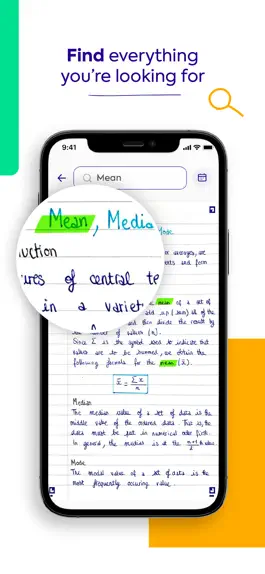 Find everything
you're looking for
9:41
Mean
Mean, Media
uction
ures of central te
in a variet
Mode
averages, we
and form
mean of a set of
(sum) all of the
and then divide the result by
of values (n).
Since Σ is the symbol used to indicate that
values are to be summed, we obtain the
following formula for the mean (x̄).
x̄ = Σx/n
Median
The median value of a set of data is the
middle value of the ordered data. This is, the
data must be put in numerical order first.
In general, the median is at the n+1/2 th value.
Mode
The modal value of a set of data is the
most frequently occuring value.